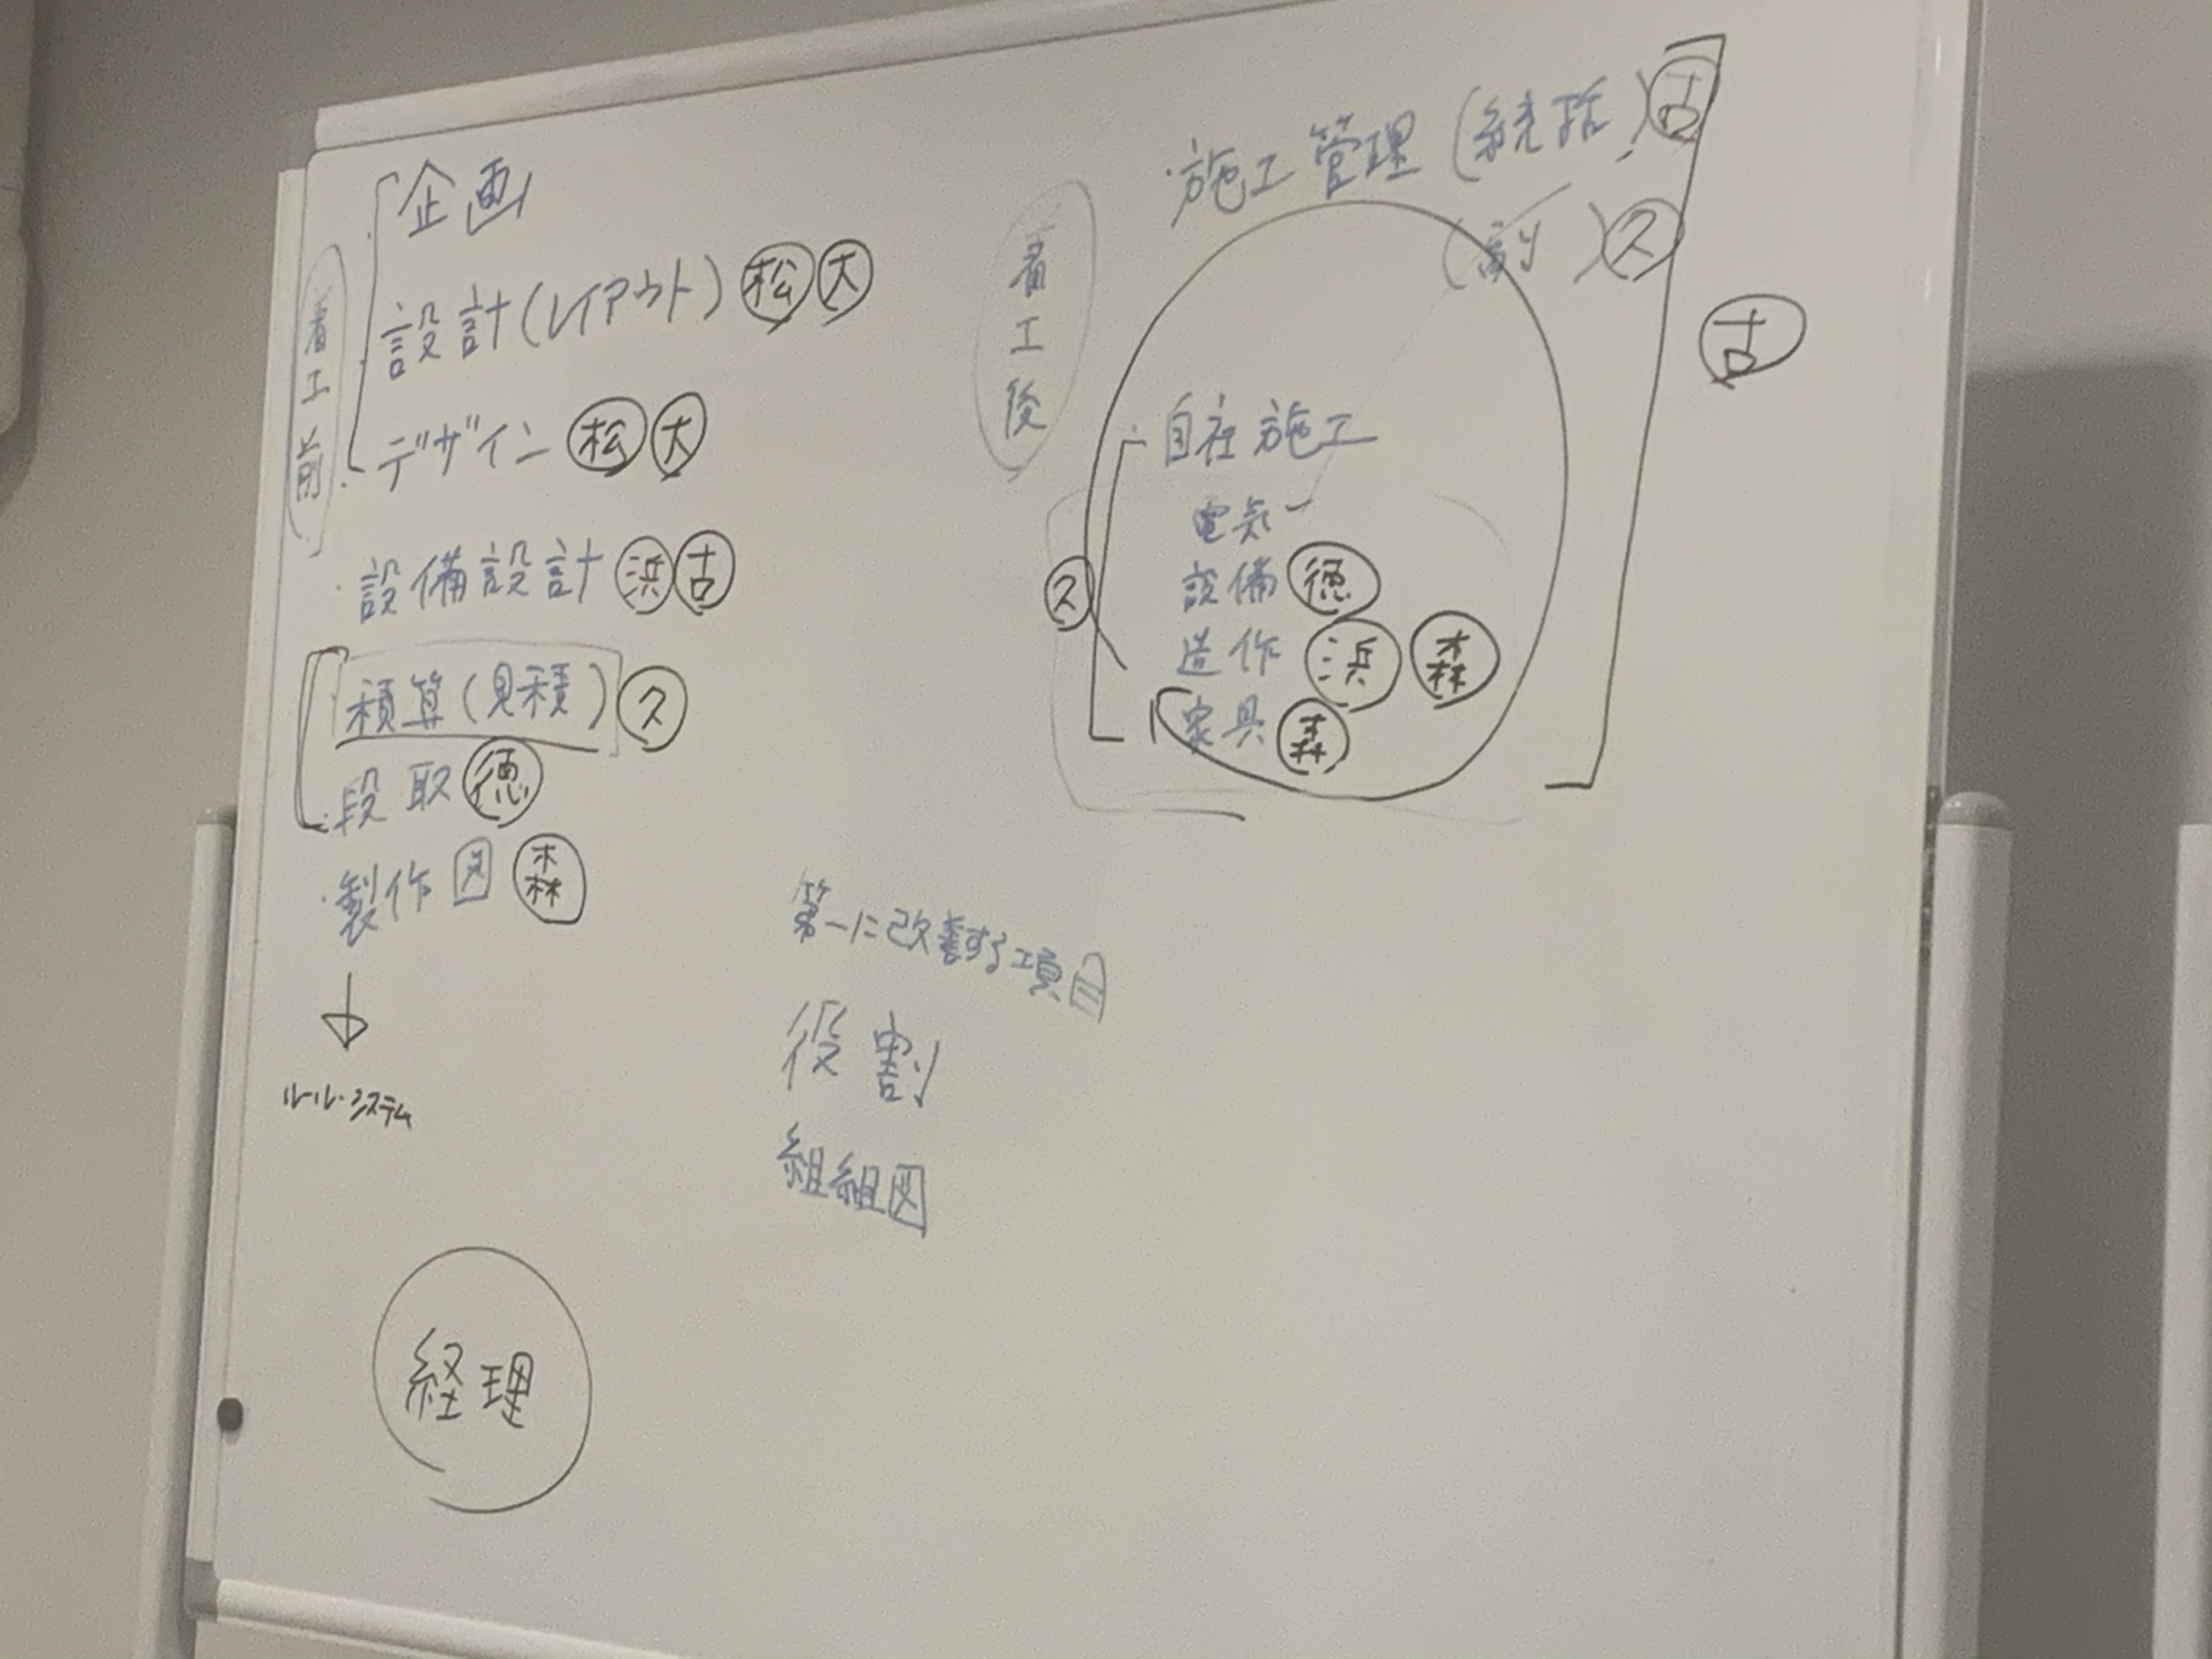 着工前
企画
設計(レイアウト) 松 大
デザイン 松 大
設備設計 浜 古
積算(見積) 久
段取 徳
製作図 森
ルール・システム
経理
第一に改善する項目
役割
組組図
着工後
施工管理(統括) 古
(副) 久
古
自社施工
電気
久
設備 徳
造作 浜 森
家具 森